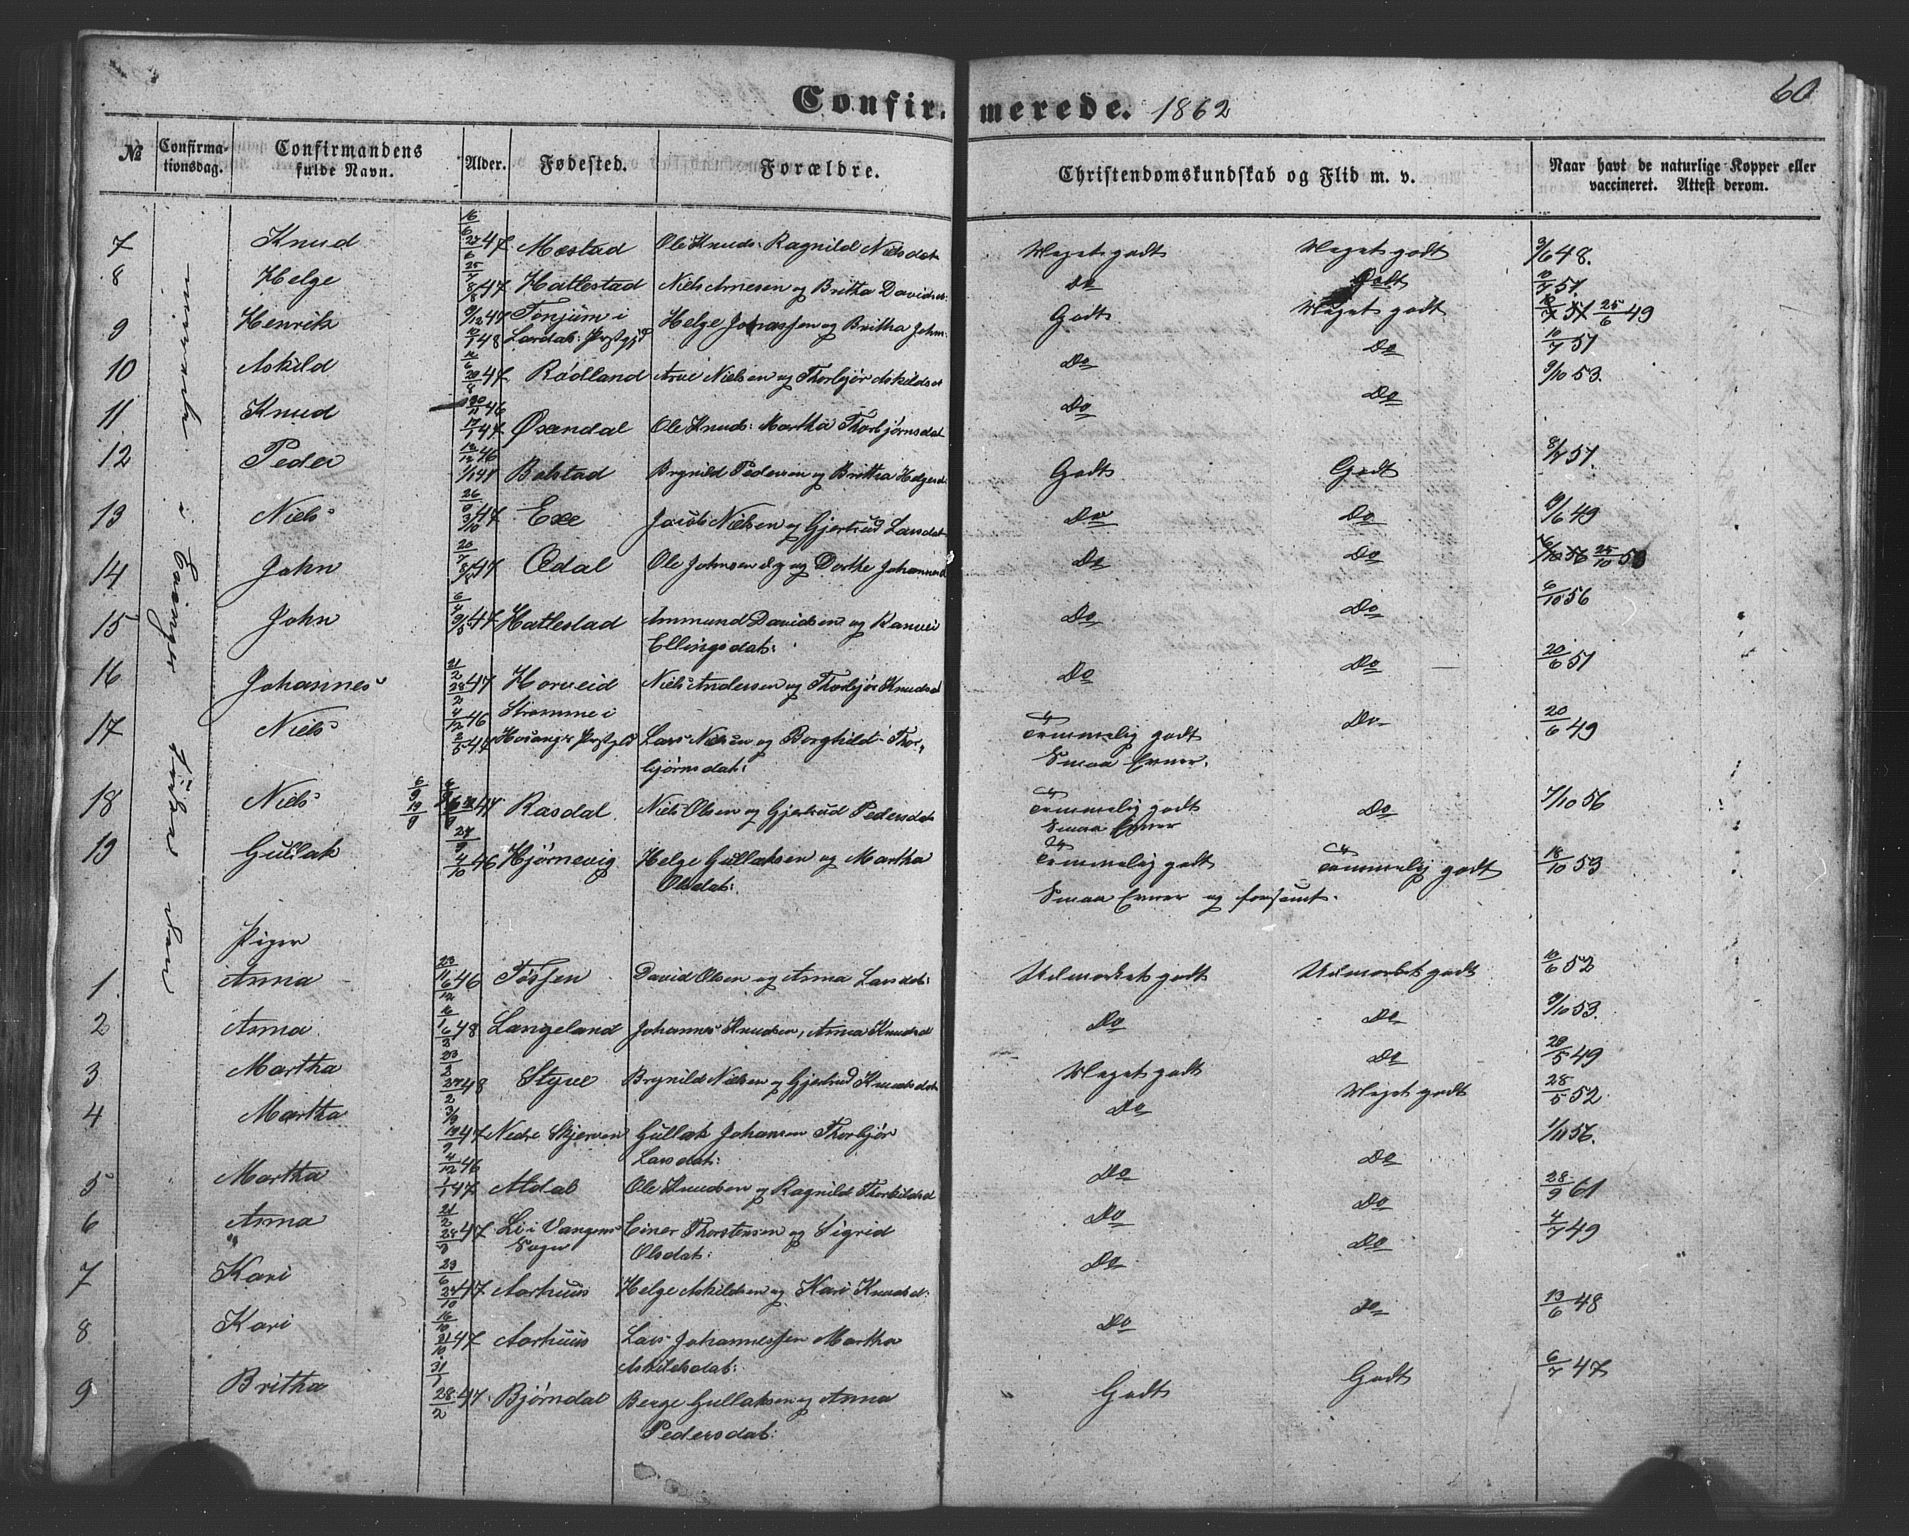 60
Confirmerede. 1862
No Confirmationsdag. Confirmandens fulde Navn. Alder. Fødested. Forældre. Christendomskundskab og Flid m. v. Naar havt de naturlige Kopper eller vaccineret. Attest derom.
7 Knud 47 Mestad Ole Knuds: Ragnild Nielsdat Meget godt Meget godt 3/6 48.
8 Helge 47 Hatlestad Niels Arnesen og Britha Davidsd: Do Godt 10/7 51.
9 Henrik 9/12 47 12/1 48 Tonjum i Lærdals Prstgjd Helge Johnssen og Britha Johns Godt Meget godt 25/6 49
10 Askild 47 Rödland Arne Nielsen og Thorbjør Askildsd Do Do 10/7 51
11 Knud 30/11 46 17/1 47 Øxendal Ole Knuds: Martha Thorbjørnsdat Do Do 9/10 53.
12 Peder 12/12 46 1/1 47 Bolstad Brynild Pedersen og Brittha Helgesd: Godt Godt 8/7 51.
13 Niels 47 Exe Jacob Nielsen og Gjertrud Larsdat Do Do 9/6 49
14 John 20/7 8/8 47 Ædal Ole Johnsen og Dorthe Johannesd Do Do 25/10
15 John 6/4 9/5 47 Hatlestad Ammund Davidsen og Ranvei Ellingsdat: Do Do 6/10 56
16 Johannes 21/2 28/2 47 Horveid Niels Andersen og Thorbjør Knudsd Do Do 20/6 51
17 Niels 4/12 46 2/5 47 Strømme i Hosangs Prstgjd Lars Nielsen og Borghild Thorbjørnsdat: Temmelig godt Smaa Evner. Do 20/6 49
18 Niels 6/9 19/9 47 Rasdal Niels Olsen og Gjertrud Pedersdat Temmelig godt Smaa Evner Do 7/10 56
19 Gullak 27/9 4/10 46 Hjørnevig Helge Gullaksen og Martha Olsdat: Temmelig godt Smaa Evner og forsømt. Temmelig godt 18/10 53
Piger
1. Anna 23/11 6/12 46 Tøssen David Olsen og Anna Larsdat: Udmærket godt Udmærket godt 10/6 52
2 Anna 48 Langeland Johannes Knudsen, Anna Knudsd Do Do 9/10 53.
3 Martha 27/2 48 Styve Brynild Nielsen og Gjertrud Knudsdat Meget godt Do 29/5 49
4 Martha 3/9 19/9 47 Nedre Skjerven Gullak Johansen Thorbjør Larsdat: Do Meget godt 28/5 52
5 Martha 4/12 46 1/1 47 Aldal Ole Knudsen og Ragnild Thorkildsd Do Do 1/11 56.
6 Anna 21/2 47 Li i Vangens Sogn Einer Thorstensen og Sigrid Olsdat: Do Do 28/9 61
7 Kari 23/6 24/10 47 Aarhuus Helge Askildsen og Kari Knudsd: Do Do 4/7 49
8 Kari 16/10 21/10 47 Aarhuus Lars Johannessen Martha Askildsdat: Do Do 13/6 48
9 Britha 31/1 28/2 47 Bjørndal Berge Gullaksen og Anna Pedersdat: Godt Godt 6/7 47